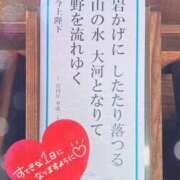 岩かげに したたり落つる
山の水 大河となりて
野を流れゆく
今上陛下
すてきな1日に
なりますように♡